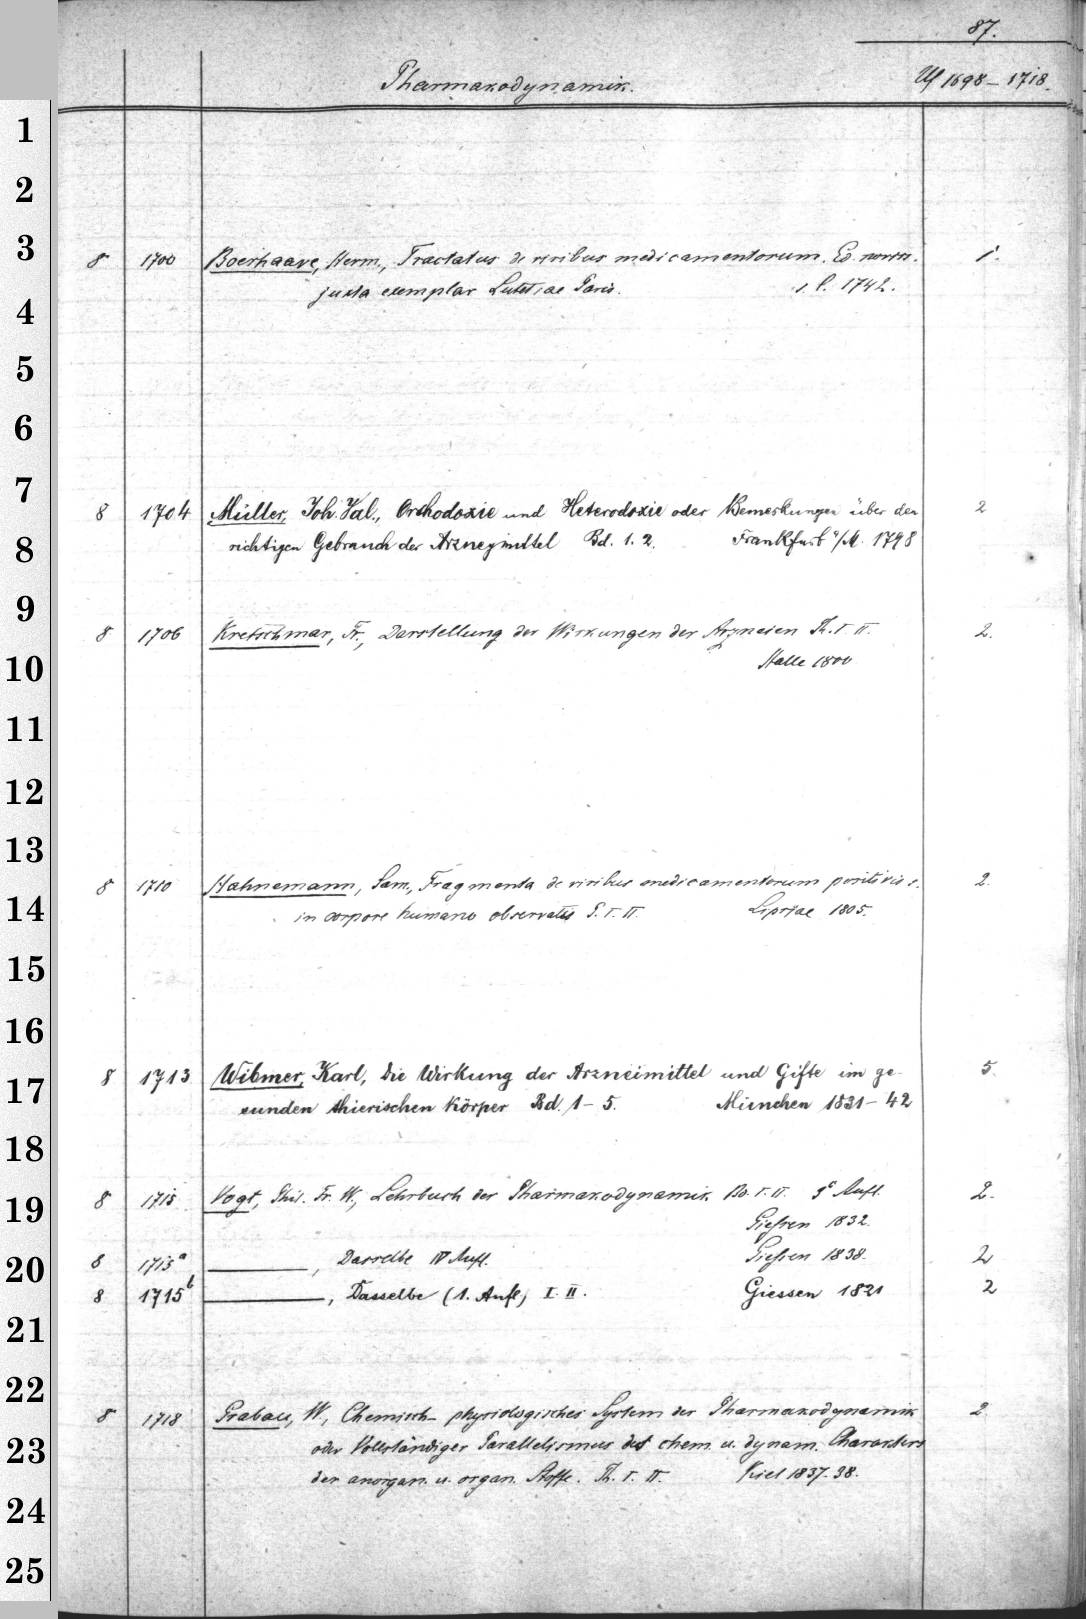 87.
Pharmakodynamik. Uf 1698-1718.
1
2
3
8 1700 Boerhaave, Herm., Tractatus de viribus medicamentorum. Ed. novis. 1.
juxta exemplar Lutetiae Paris. s. l. 1742.
4
5
6
7
8 1704 Müller, Joh. Val., Orthodoxie und Heterodoxie oder Bemerkungen über den 2
richtigen Gebrauch der Arzneymittel Bd. 1. 2. Frankfurt a/M. 1798
8
9
8 1706 Kretschmar, Fr., Darstellung der Wirkungen der Arzneien Th. I. II. 2.
Halle 1800
10
11
12
13
8 1710 Hahnemann, Sam., Fragmenta de viribus medicamentorum positivis s. 2.
in corpore humano observatis P. I. II. Lipsiae 1805.
14
15
16
8 1713 Wibmer, Karl, Die Wirkung der Arzneimittel und Gifte im ge- 5
sunden thierischen Körper Bd. 1-5. München 1831-42
17
18
8 1715 Vogt, Phil. Fr. W., Lehrbuch der Pharmakodynamik Bd. I. II. 3e Aufl. 2.
Giessen 1832.
19
8 1715a ———, Dasselbe IV Aufl. Giessen 1838. 2
20
8 1715b ———, Dasselbe (1. Aufl.) I. II. Giessen 1821 2
21
22
8 1718 Grabau, W., Chemisch-physiologisches System der Pharmakodynamik 2
oder Vollständiger Parallelismus des chem. u. dynam. Charakters
23
der anorgan. u. organ. Stoffe. Th. I. II. Kiel 1837-38.
24
25